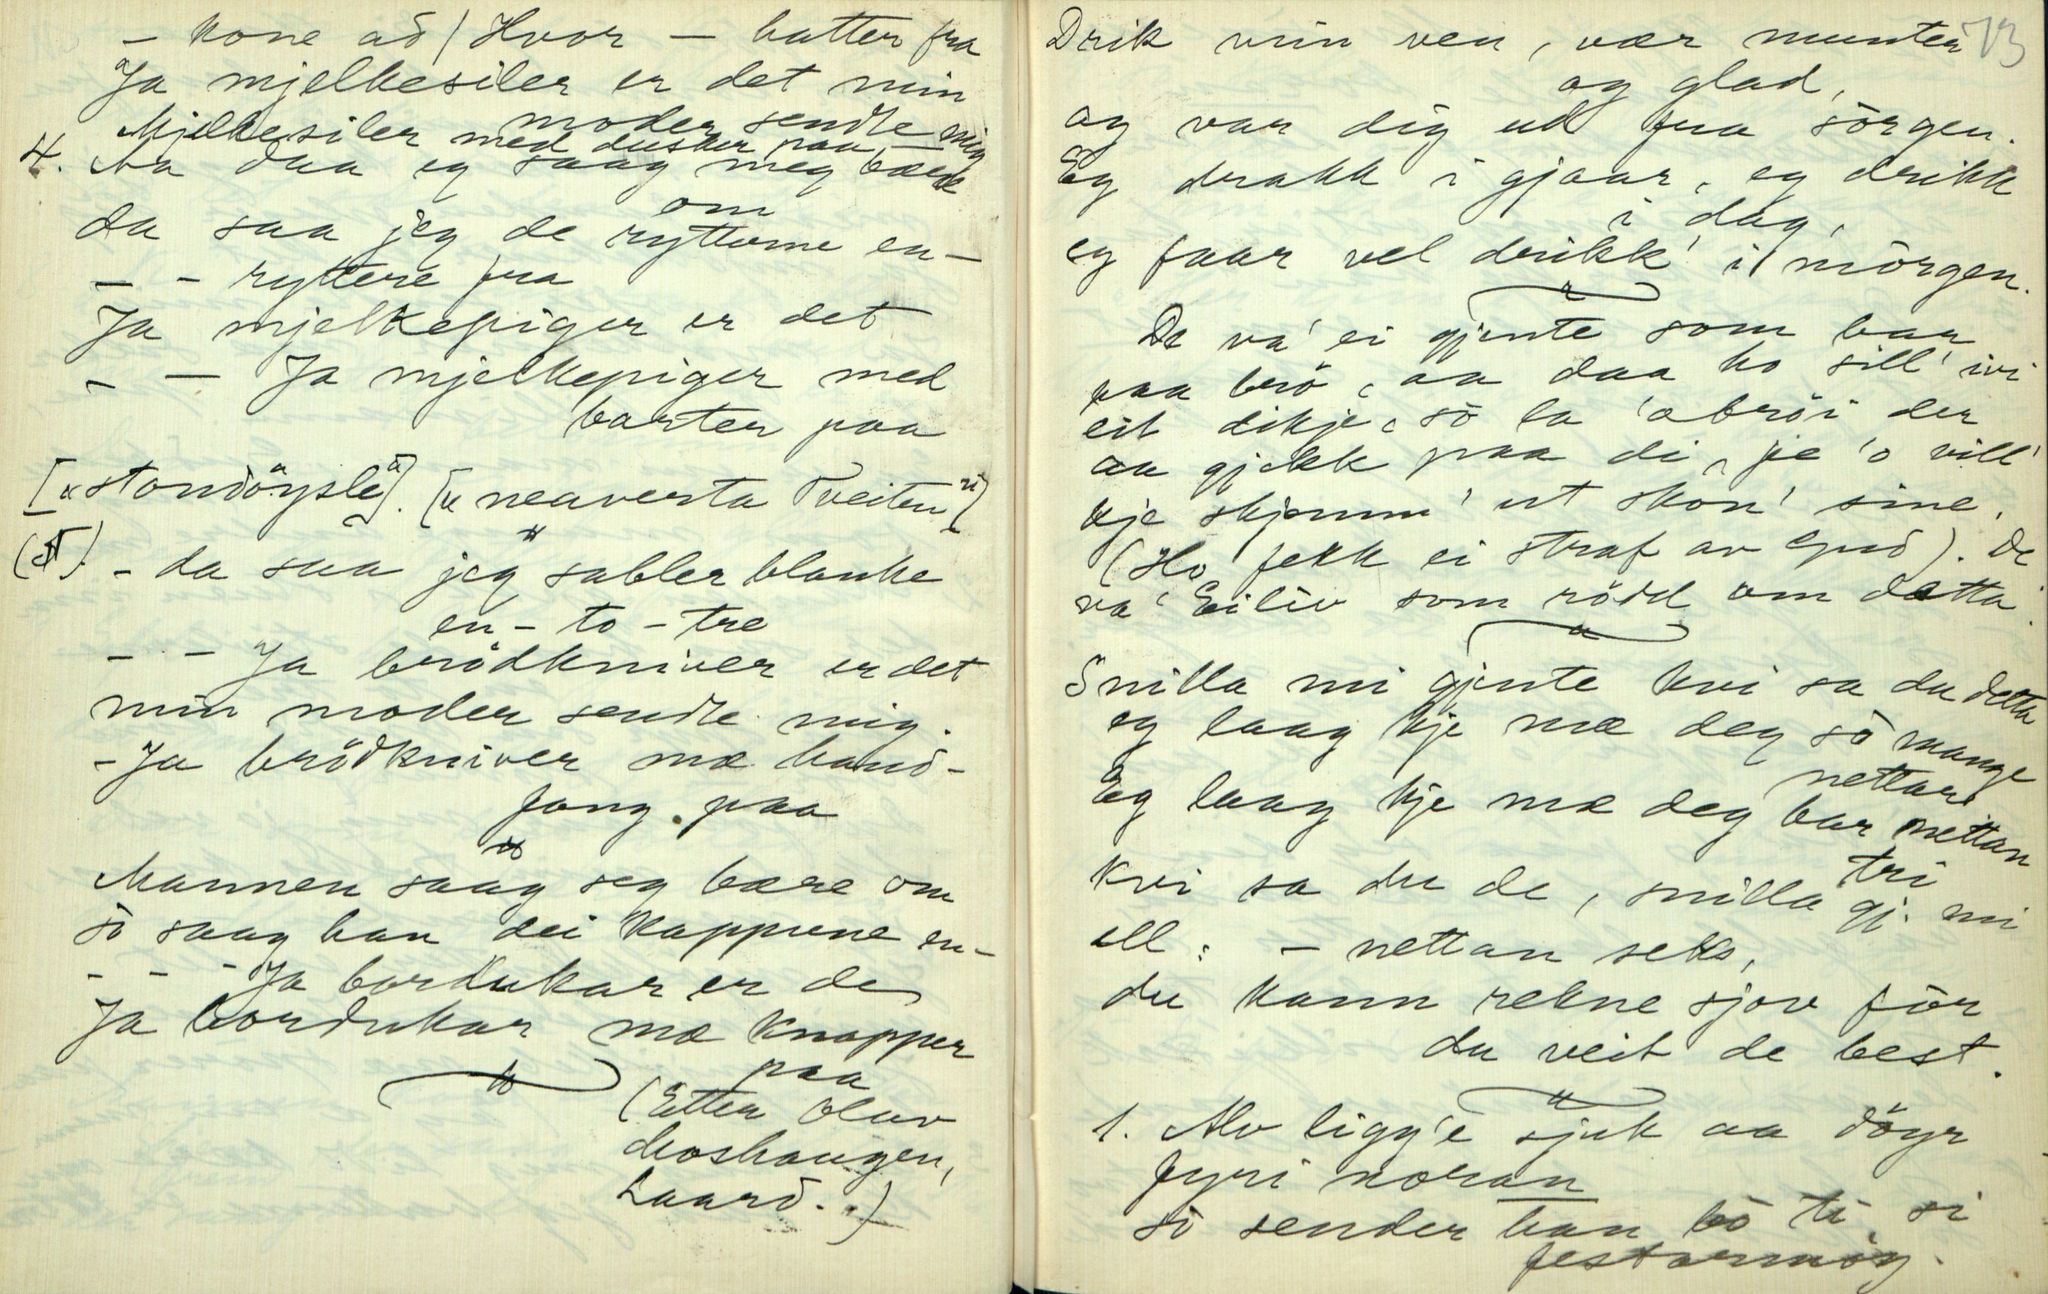 - kone ad / Hvor - hatter fra
Ja mjelkesiler er det min
moder sendte mig
Mjelkesiler med dusker paa
4. Aa daa eg saag meg bære
om
da saa jeg de rytterne en-
- - ryttere fra
Ja mjelkepiger er det
- - Ja mjelkepiger med
barter paa
["stondöysle"]. [" neaversta Tveiten"]
- da saa jeg sabler blanke
en - to - tre
- - Ja brödkniver er det
min moder sendte mig.
- Ja brödkniver mæ hand-
fang paa
Mannen saag seg bære om
sò saag han dei kappune en-
- - - Ja bordukar er de
Ja bordukar mæ knapper
paa
(Etter Olav
Moshaugen,
Laard..)
73
Drik min ven, vær munter
og glad,
og var dig ud fra sörgen.
Eg drakk i gjaar, eg drikk
i dag,
eg faar vel drikk' i mörgen.
De va' ei gjente som bar
paa brö, aa daa ho sill' ivi
eit dikje, sò la 'a bröi der
aa gjekk paa di, je 'o vill'
kje skjemm' ut skon' sine.
(Ho fekk ei straf av Gud). De
va' Eiliv som rödd om detta.
Snilla mi gjente kvi sa du detta
eg laag kje mæ deg sò mange
nettar
Eg laag kje mæ deg bar nettan
tri
Kvi sa du de, snilla gj. mi
ell: - nettan seks,
du kann rekne sjov för
du veit de best.
1. Alv ligg'e sjuk aa döyr
fyri moran
sò sender han bò ti si
festarmöy.